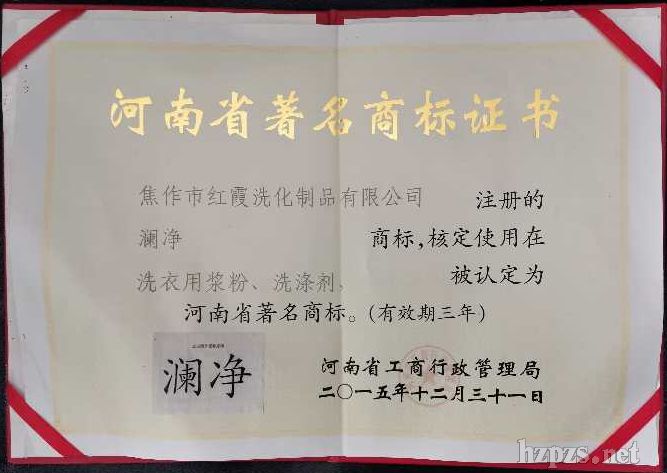 河南省著名商标证书
焦作市红霞洗化制品有限公司 注册的
澜净 商标,核定使用在
洗衣用浆粉、洗涤剂、 被认定为
河南省著名商标。(有效期三年)
澜净
河南省工商行政管理局
二〇一五年十二月三十一日
hzpzs.net